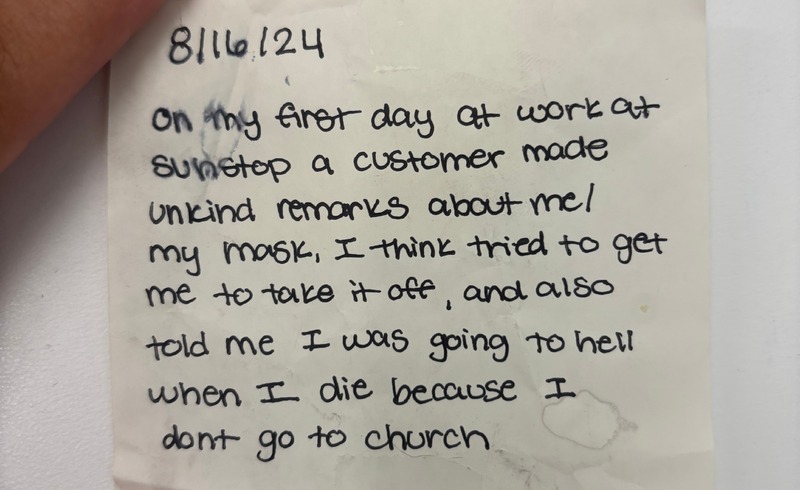 8/16/24
on my first day at work at
sunstop a customer made
unkind remarks about me/
my mask, I think tried to get
me to take it off, and also
told me I was going to hell
when I die because I
dont go to church